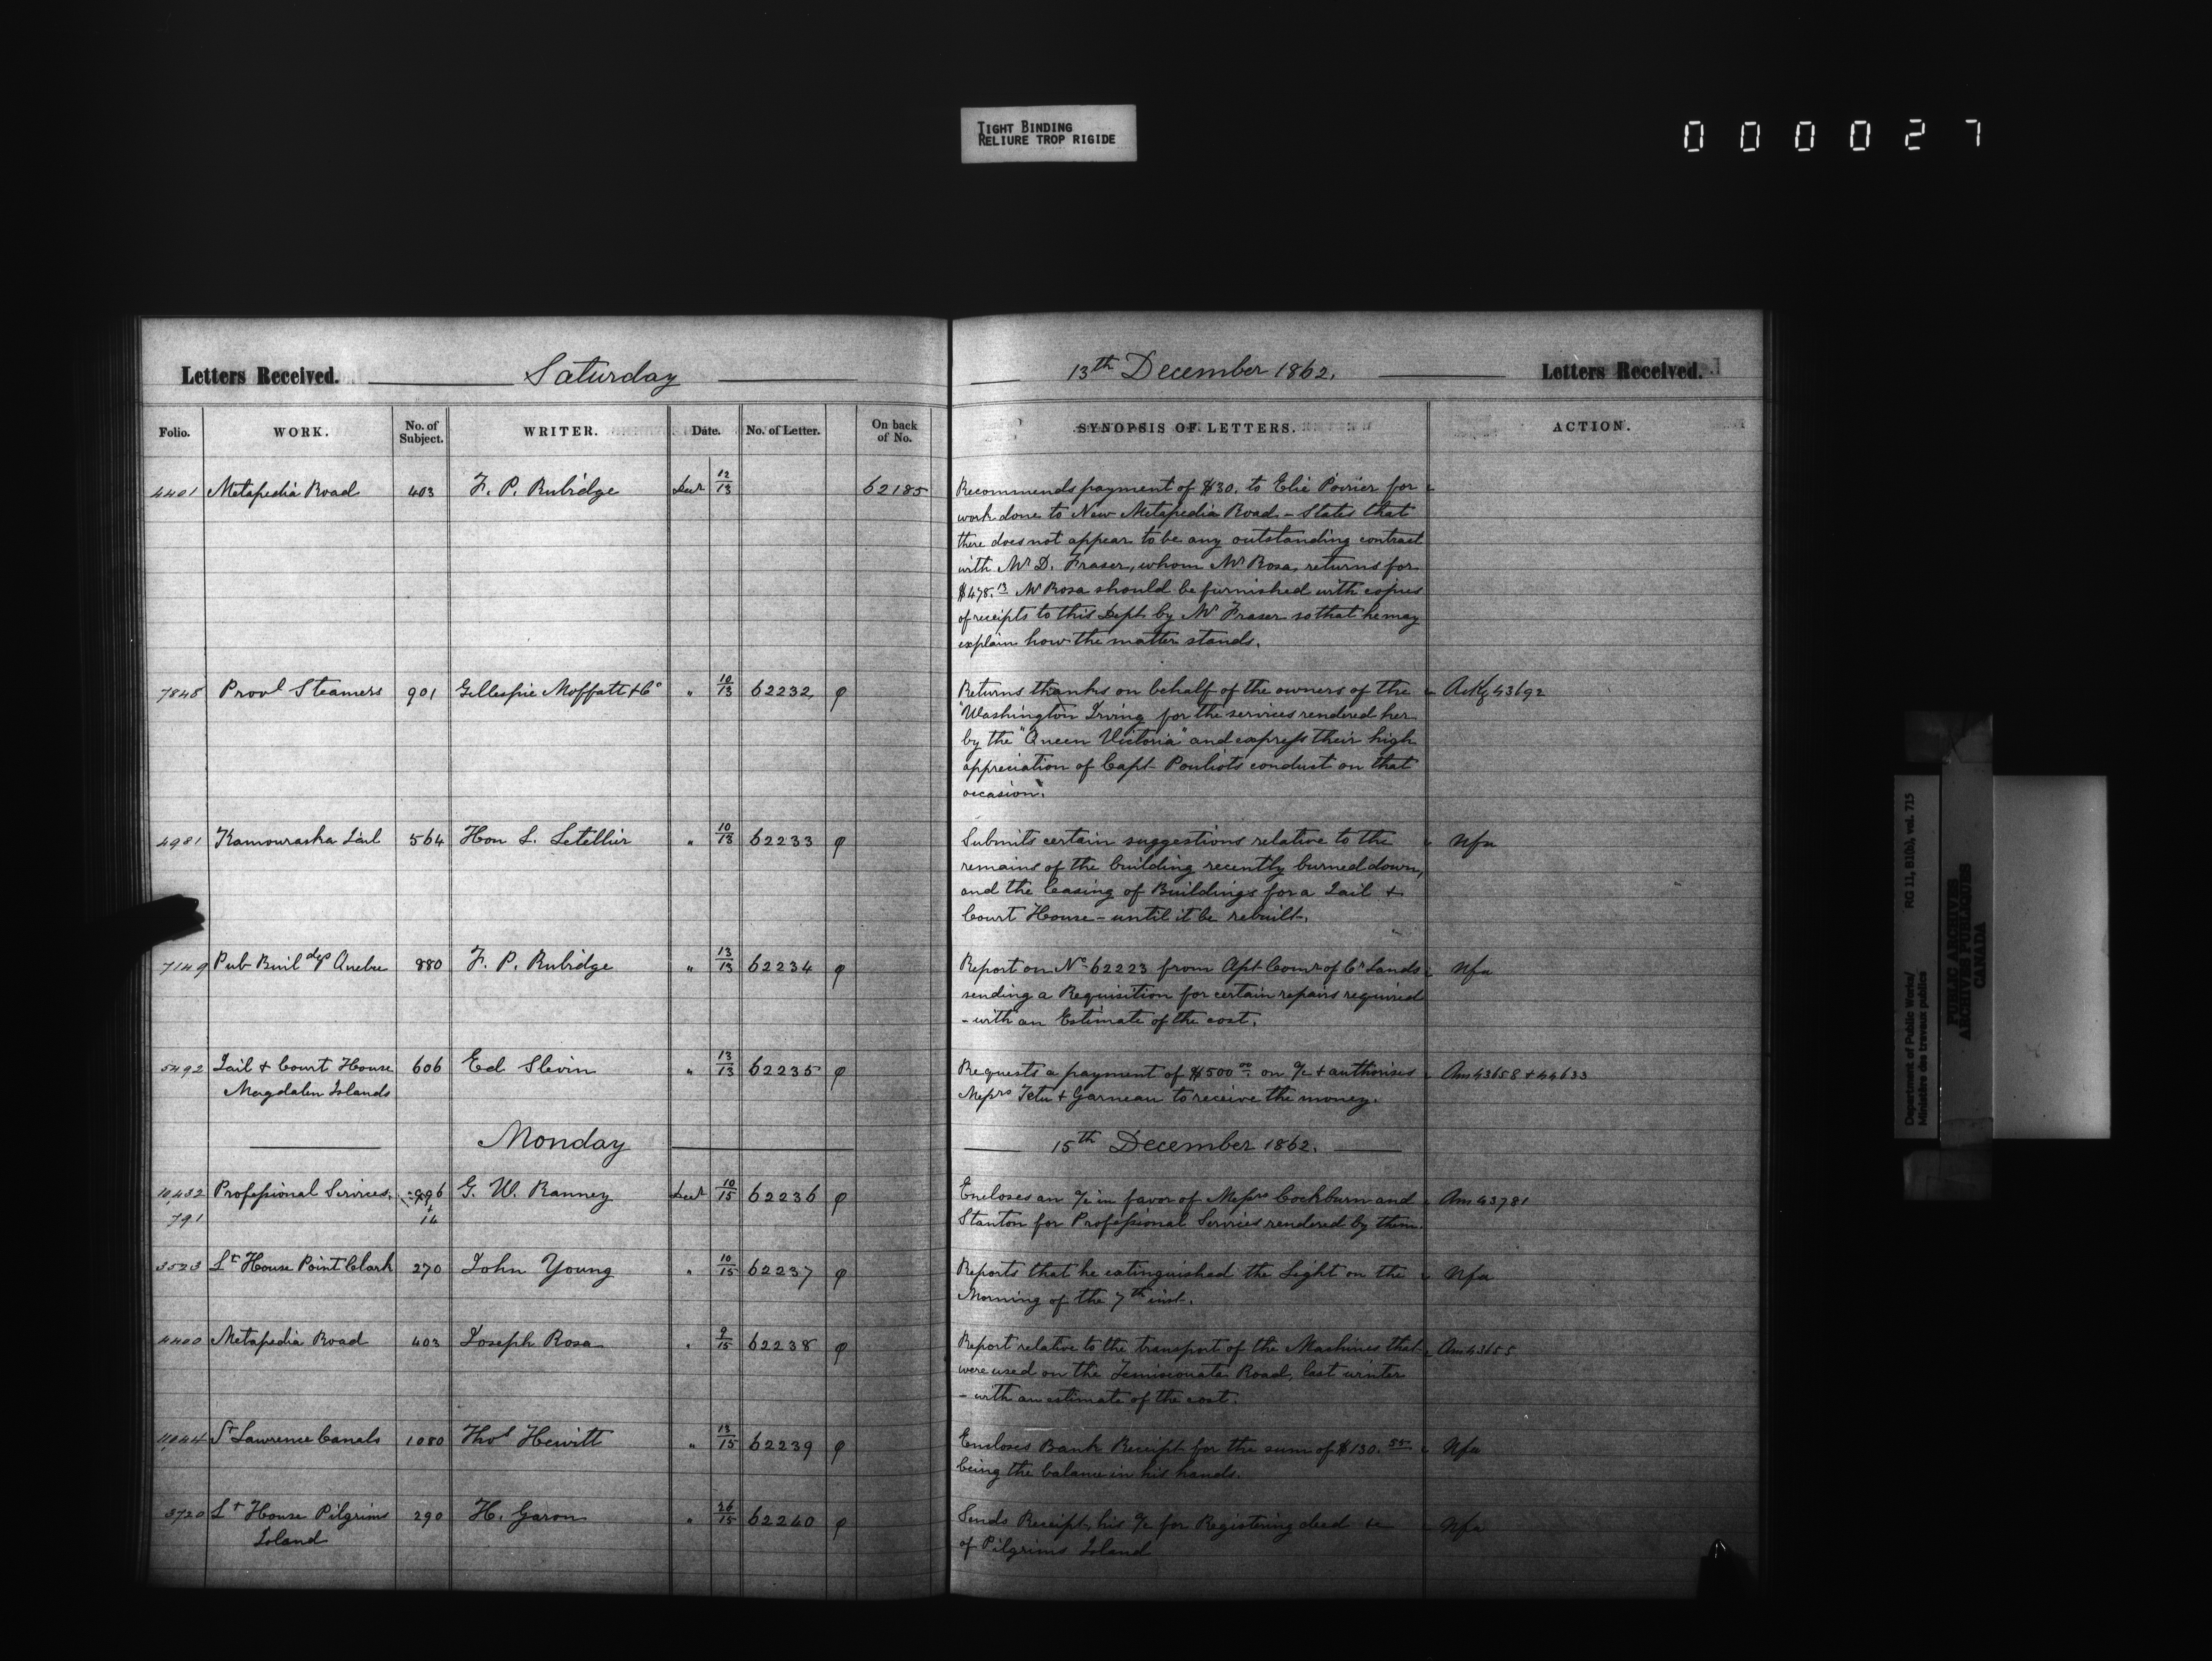 TIGHT BINDING
RELIURE TROP RIGIDE
000027
Letters Received. Saturday 13th December 1862. Letters Received.
Folio. WORK. No. of Subject. WRITER. Date. No. of Letter. On back of No. SYNOPSIS OF LETTERS. ACTION.
4401 Metapedia Road 403 F. P. Rubidge Decr 12/13 62185 Recommends payment of $30. to Elie Poirier for
work done to New Metapedia Road - States that
there does not appear to be any outstanding contract
with Mr D. Fraser, whom Mr Rosa, returns for
$478.13 Mr Rosa should be furnished with copies
of receipts to this Dept by Mr Fraser so that he may
explain how the matter stands.
7848 Provl Steamers 901 Gillespie Moffatt & Co " 10/13 62232 φ Returns thanks on behalf of the owners of the Ackg 43692
"Washington Irving for the services rendered her
by the "Queen Victoria" and express their high
appreciation of Capt Pouliots conduct on that
occasion.
4981 Kamouraska Jail 564 Hon L. Letellier " 10/13 62233 φ Submits certain suggestions relative to the Nfa
remains of the building recently burned down,
and the leasing of Buildings for a Jail &
Court House - until it be rebuilt.
7149 Pub Buildgs Quebec 880 F. P. Rubidge " 13/13 62234 φ Report on No 62223 from Asst Comr of Cr Lands Nfa
sending a Requisition for certain repairs required
- with an Estimate of the cost.
5492 Jail & Court House 606 Ed Slevin " 13/13 62235 φ Requests a payment of $500.00 on a/c & authorises Am 43658 & 44633
Magdalen Islands Messrs Tetu & Garneau to receive the money.
Monday 15th December 1862.
10,432 Professional Services 996 G. W. Ranney Decr 10/15 62236 φ Encloses an a/c in favor of Messrs Cockburn and Am 43781
791 & 14 Stanton for Professional Services rendered by them.
3523 Lt House Point Clark 270 John Young " 10/15 62237 φ Reports that he extinguished the Light on the Nfa
Morning of the 7th inst.
4400 Metapedia Road 403 Joseph Rosa " 9/15 62238 φ Report relative to the transport of the Machines that Am 43655
were used on the Temiscouata Road, last winter
- with an estimate of the cost.
11,044 St Lawrence Canals 1080 Thos Hewitt " 13/15 62239 φ Encloses Bank Receipt for the sum of $130.55 Nfa
being the balance in his hands.
3720 Lt House Pilgrims 290 H. Garon " 26/15 62240 φ Sends Receipt, his a/c for Registering deed &c Nfa
Island of Pilgrims Island
Department of Public Works/ RG 11, B1(b), vol. 715
Ministère des travaux publics
PUBLIC ARCHIVES
ARCHIVES PUBLIQUES
CANADA